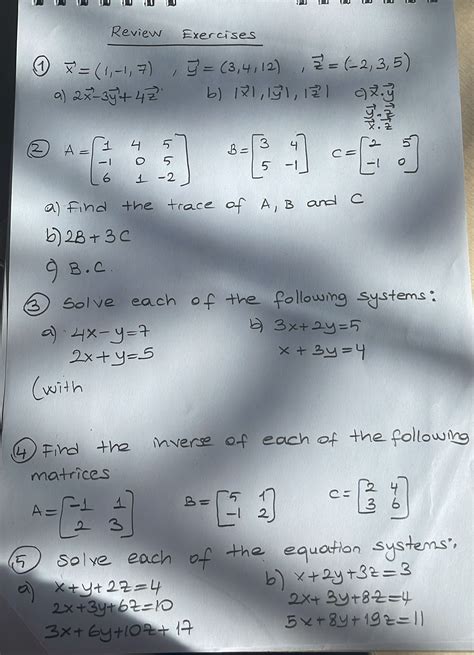 Review Exercises
① x⃗=(1,-1,7) , y⃗=(3,4,12) , z⃗=(-2,3,5)
a) 2x⃗-3y⃗+4z⃗ b) |x⃗|,|y⃗|,|z⃗| c) x⃗.y⃗
y⃗.z⃗
x⃗.z⃗
② A=[1 4 5 B=[3 4] C=[2 5]
-1 0 5 5 -1 -1 0
6 1 -2]
a) Find the trace of A, B and C
b) 2B+3C
c) B.C.
③ Solve each of the following systems:
a) 4x-y=7 b) 3x+2y=5
2x+y=5 x+3y=4
(with
④ Find the inverse of each of the following
matrices
A=[-1 1 B=[5 1 C=[2 4
2 3] -1 2] 3 6]
5 Solve each of the equation systems.
a) x+y+2z=4 b) x+2y+3z=3
2x+3y+6z=10 2x+3y+8z=4
3x+6y+10z+17 5x+8y+19z=11